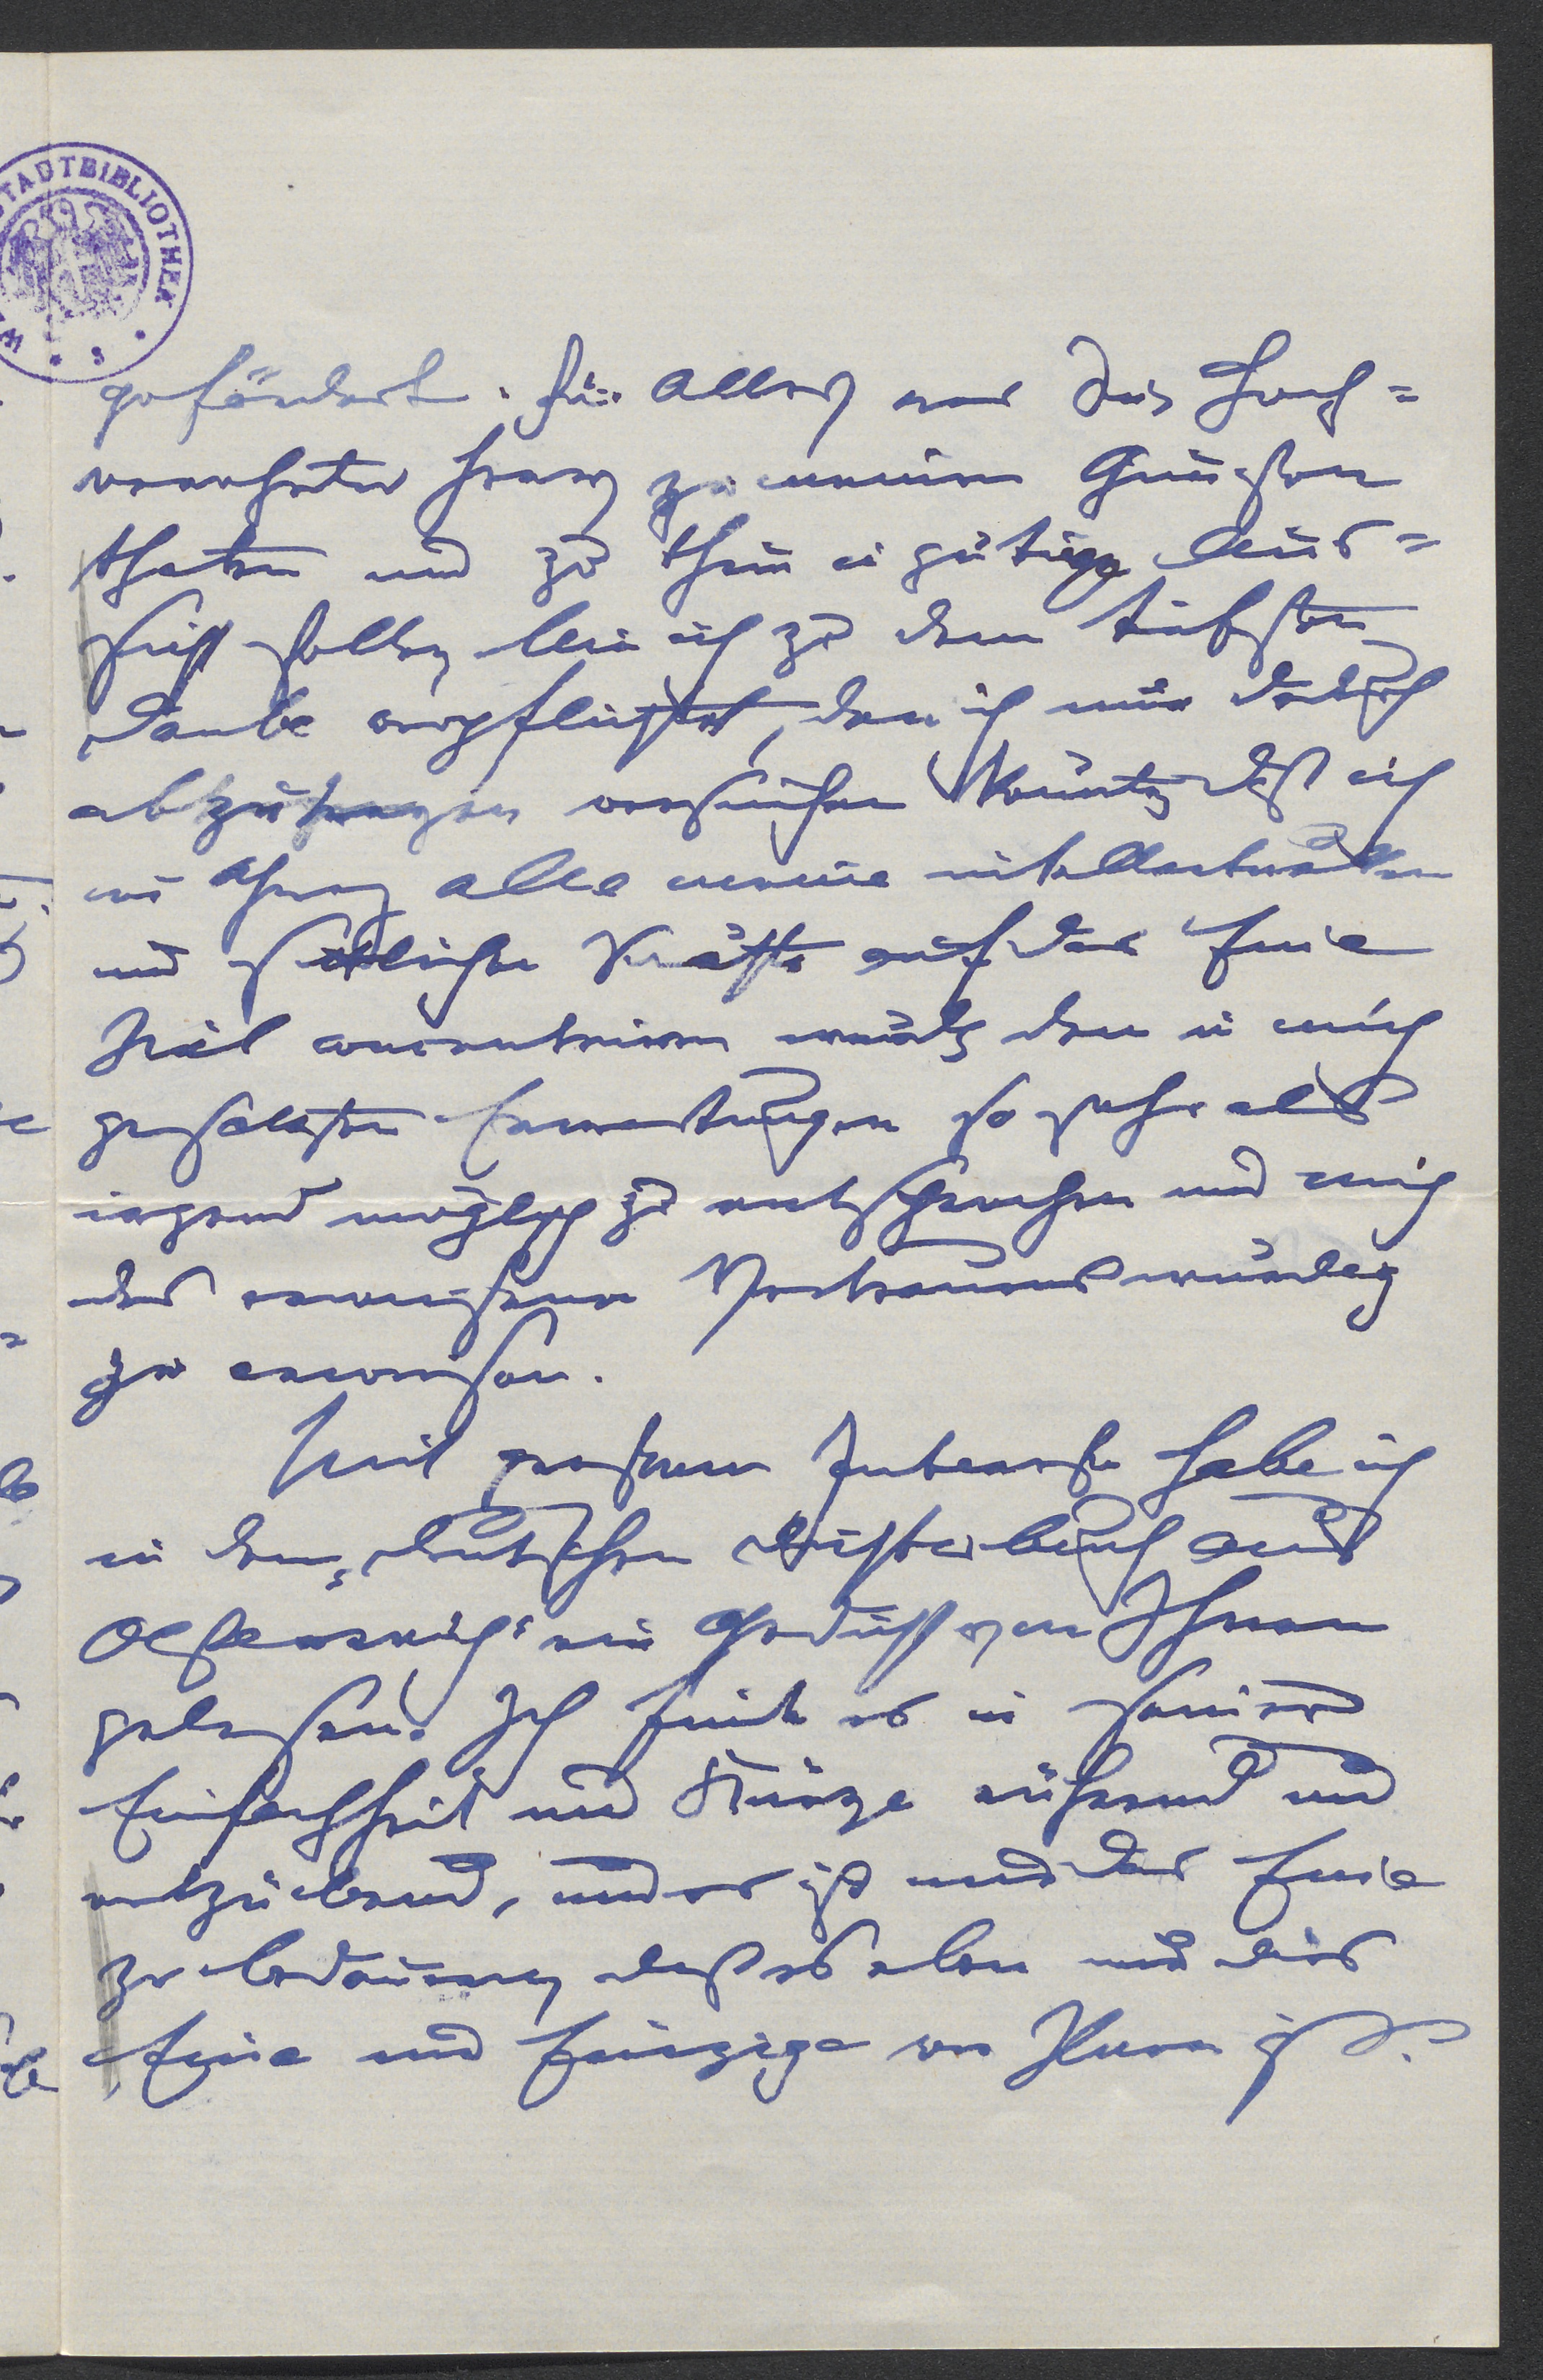 STADTBIBLIOTHEK
gefördert. Für Alles, was Sie, hoch=
verehrter Herr, zu meinen Gunsten
thaten und zu thun in gütige Aus=
sicht stellen, bin ich zu dem tiefsten
Danke verpflichtet, den ich nur dadurch
abzutragen versuchen könnte, daß ich
im Ganzen alle meine intellectuellen
und sittlichen Kräfte auf das Eine
Ziel concentriren würde, den in mich
gesetzten Erwartungen so sehr als
irgend möglich zu entsprechen und mich
des erwiesenen Vertrauens würdig
zu erweisen.
Mit großem Interesse habe ich
in dem „Deutschen Dichterbuch aus
Österreich" ein Gedicht von Ihnen
gelesen. Ich finde es in seiner
Einfachheit und Kürze rührend und
entzückend, und es ist nur das Eine
zu bedauern, daß es eben nur dies
Eine und Einzige von Ihnen ist.